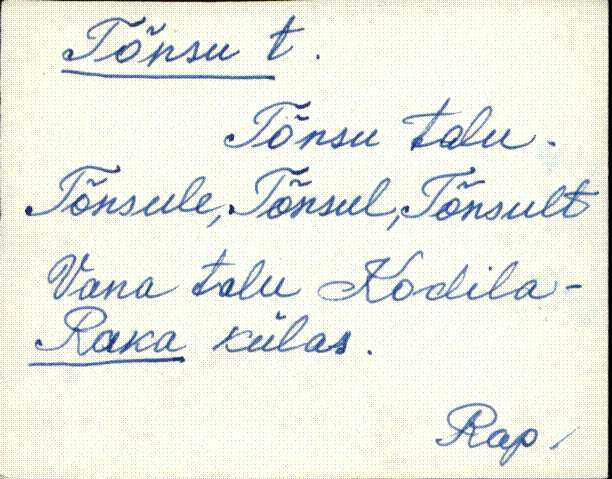 Tõnsu t.
Tõnsu talu.
Tõnsule, Tõnsul, Tõnsult
Vana talu Kodila-
Raka külas.
Rap.